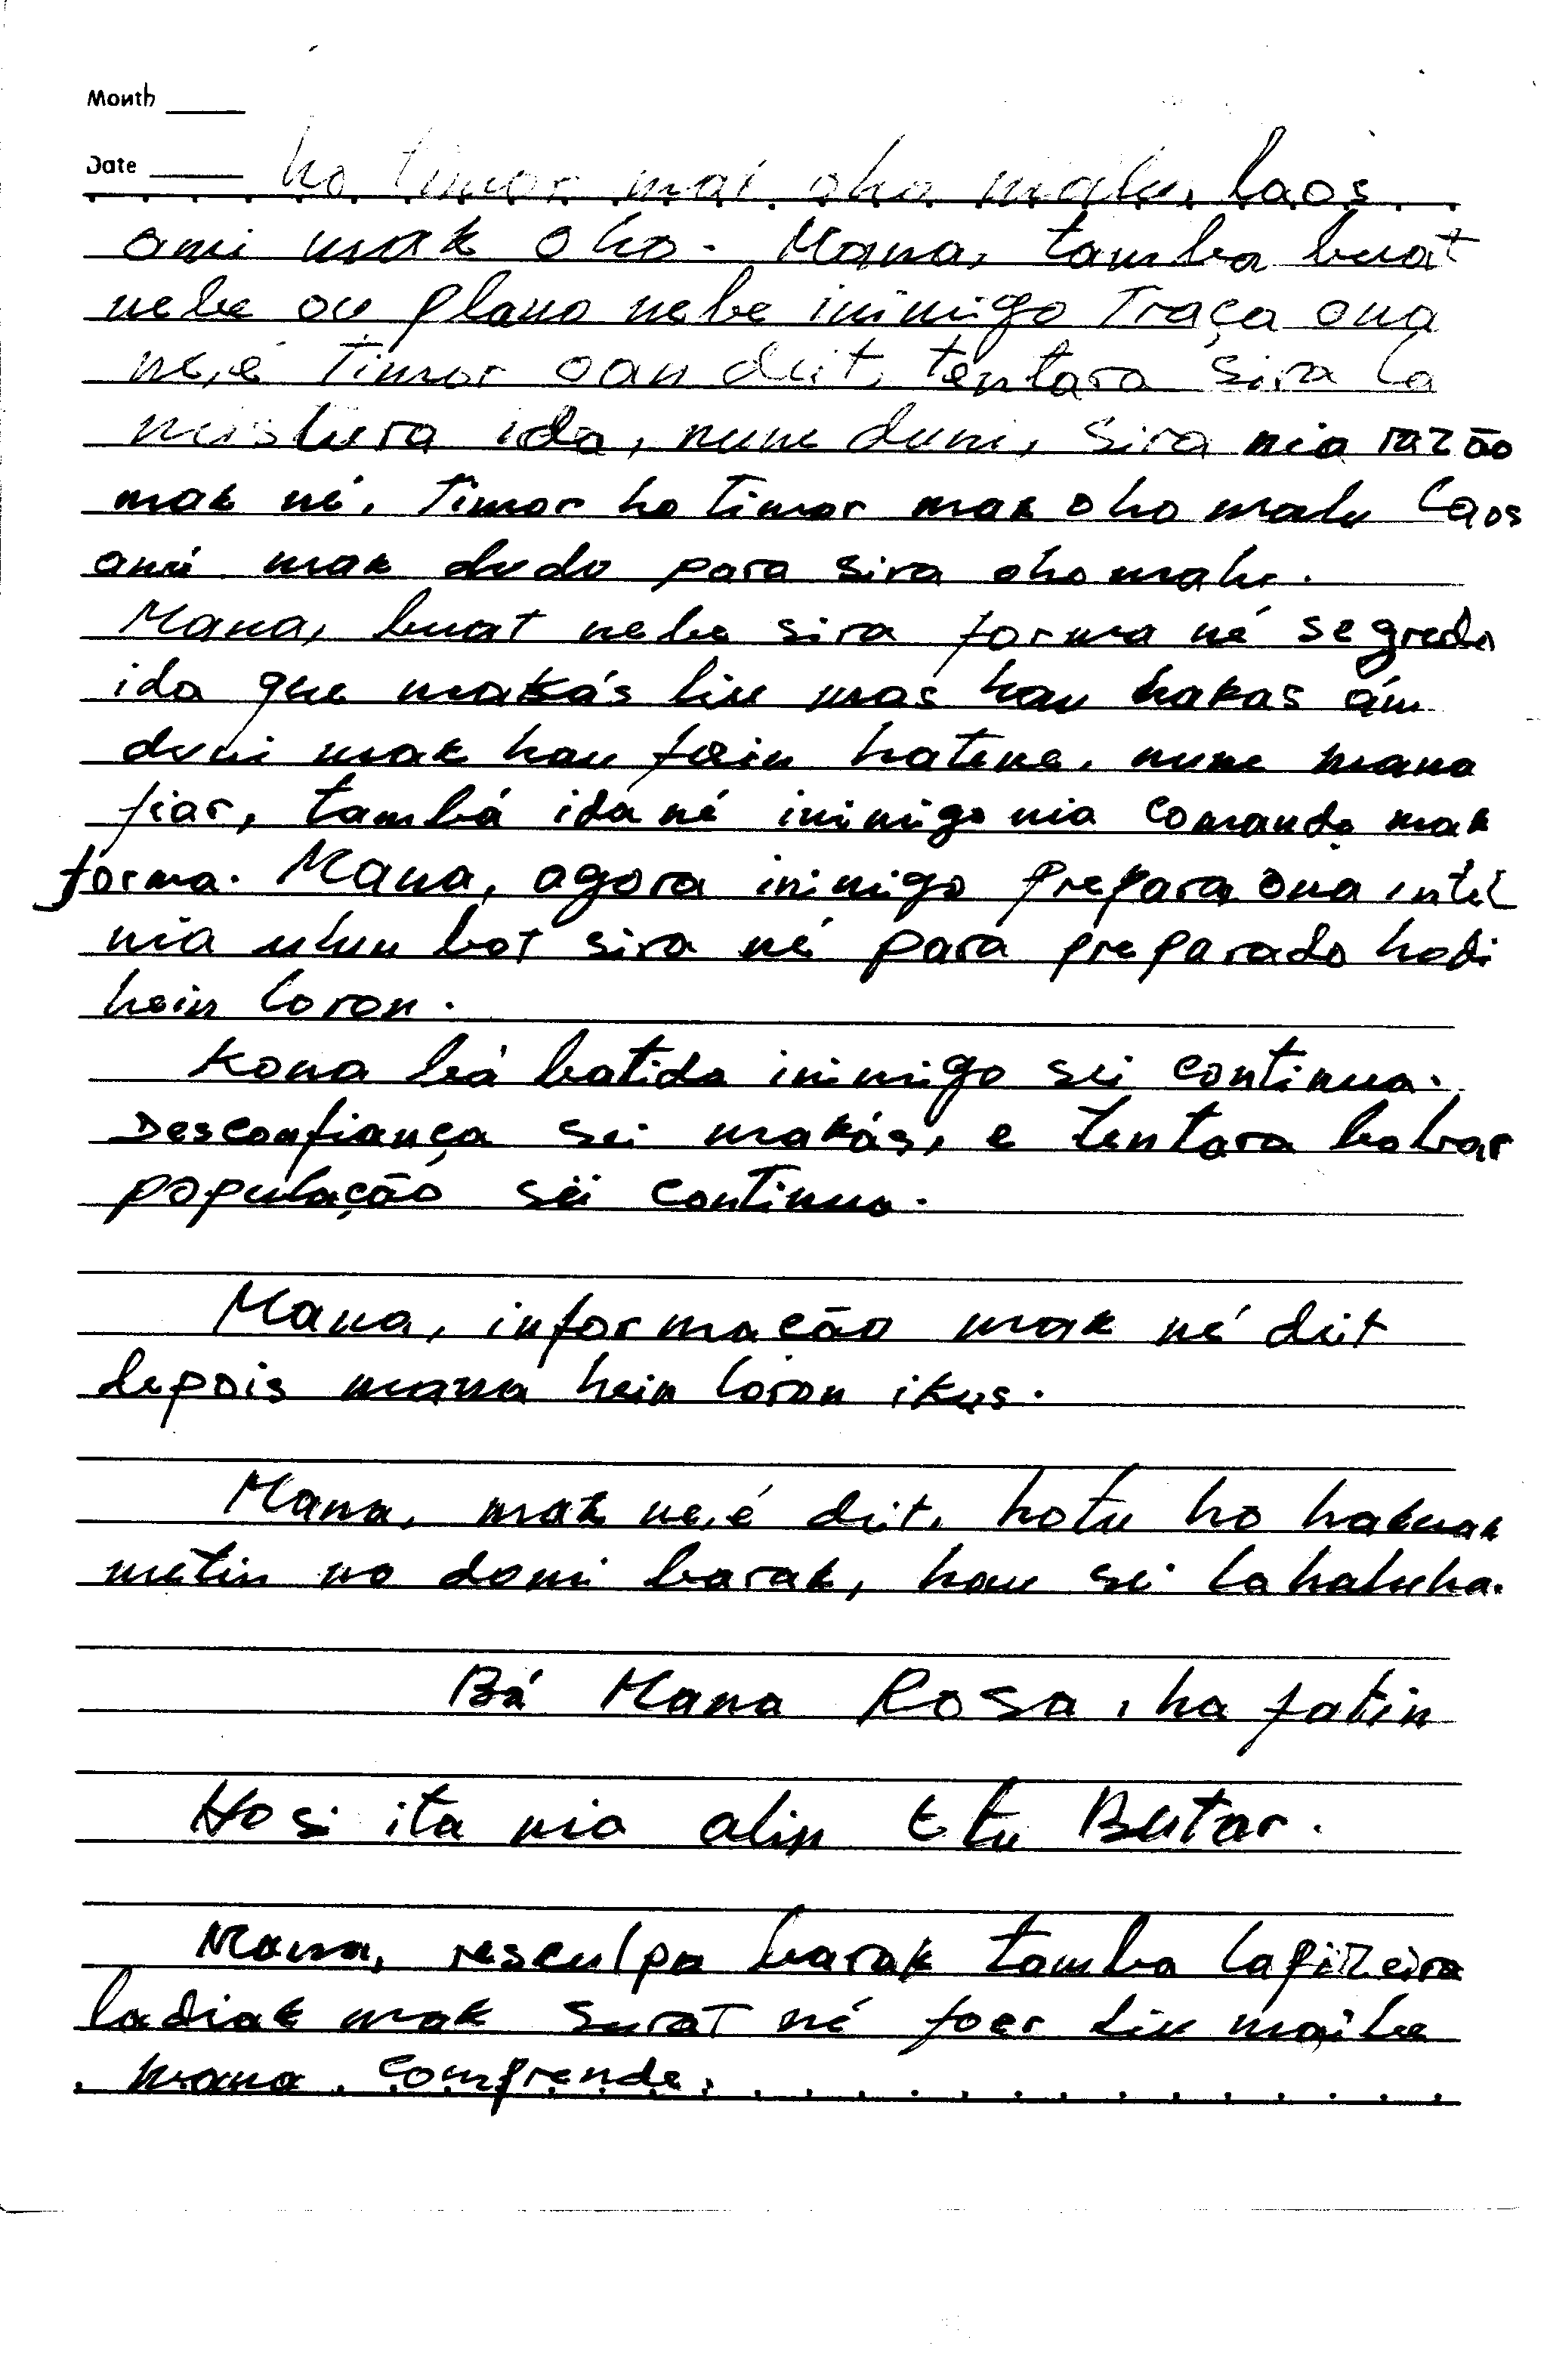 Month
Date
ho timor mai oho malu, laos
ami mak oho. Mana, tamba buat
nebe ou plano nebe inimigo Traça ona
ne,é Timor oan deit, tentara sira la
mistura ida, nune duni, sira nia razão
mak né. Timor ho timor mak oho malu laos
ami mak dudu para sira oho malu.
Mana, buat nebe sira forma né segredu
ida que makás liu mas hau hakas án
duni mak hau foin hatene, nune mana
fiar, tambá ida né inimigo nia comando mak
forma. Mana, agora inimigo prepara ona intel
nia ulun bot sira né para preparado hodi
hein loron.
Kona bá batida inimigo sei continua.
Desconfiança sei makás, e tentara bobar
população sei continua.
Mana, informação mak né deit
depois mana hein loron ikus.
Mana, mak ne,é deit, hotu ho hakuak
metin no domi barak, hau sei la haluha.
Bá Mana Rosa, ha fatin
Hosi ita nia alin Etu Butar.
Mana, resculpa barak tamba lapizeira
ladiak mak surat né foer liu maibe
mana comprende.